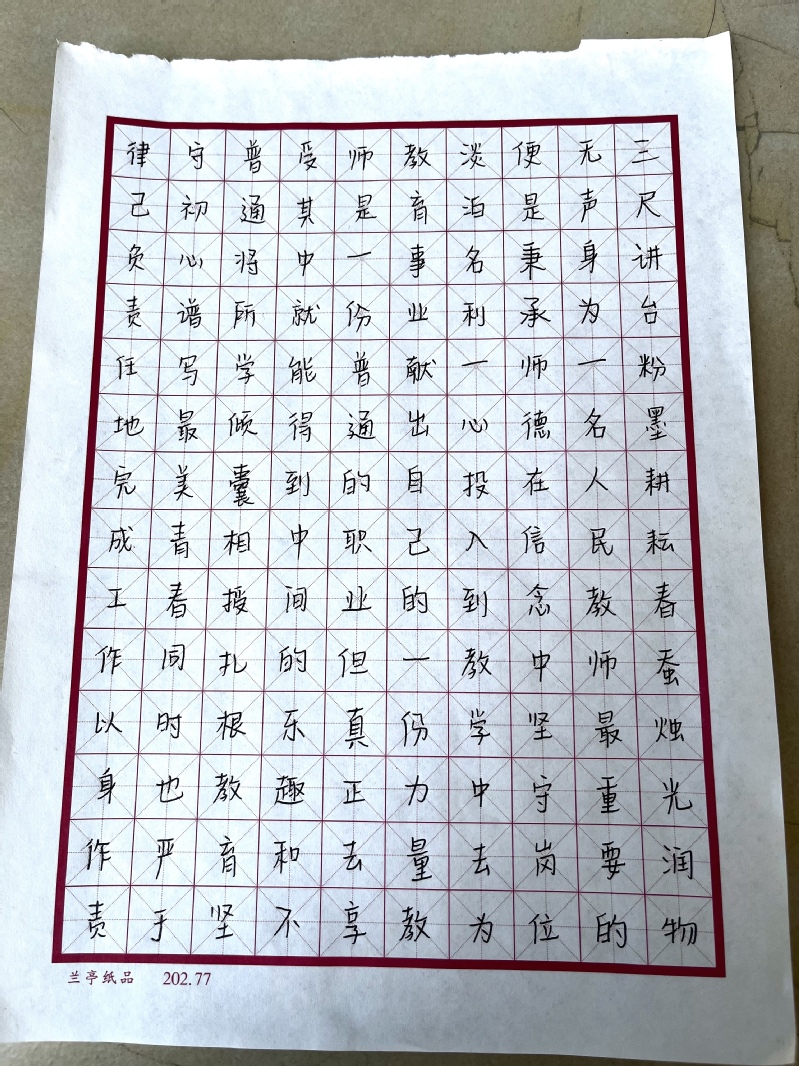 三尺讲台粉墨耕耘春蚕烛光润物
无声身为一名人民教师最重要的
便是秉承师德在信念中坚守岗位
淡泊名利一心投入到教学中去为
教育事业献出自己的一份力量教
师是一份普通的职业但真正去享
受其中就能得到中间的乐趣和不
普通将所学倾囊相授扎根教育坚
守初心谱写最美青春同时也严于
律己负责任地完成工作以身作责
兰亭纸品 202.77